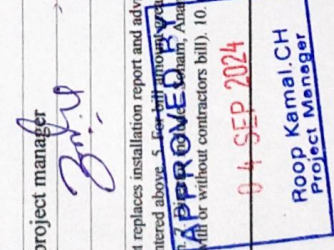 project manager
t replaces installation report and adv
ntered above. 5. For bill amount grea
APPROVED BY
with or without contractors bill). 10.
04 SEP 2024
Roop Kamal.CH
Project Manager